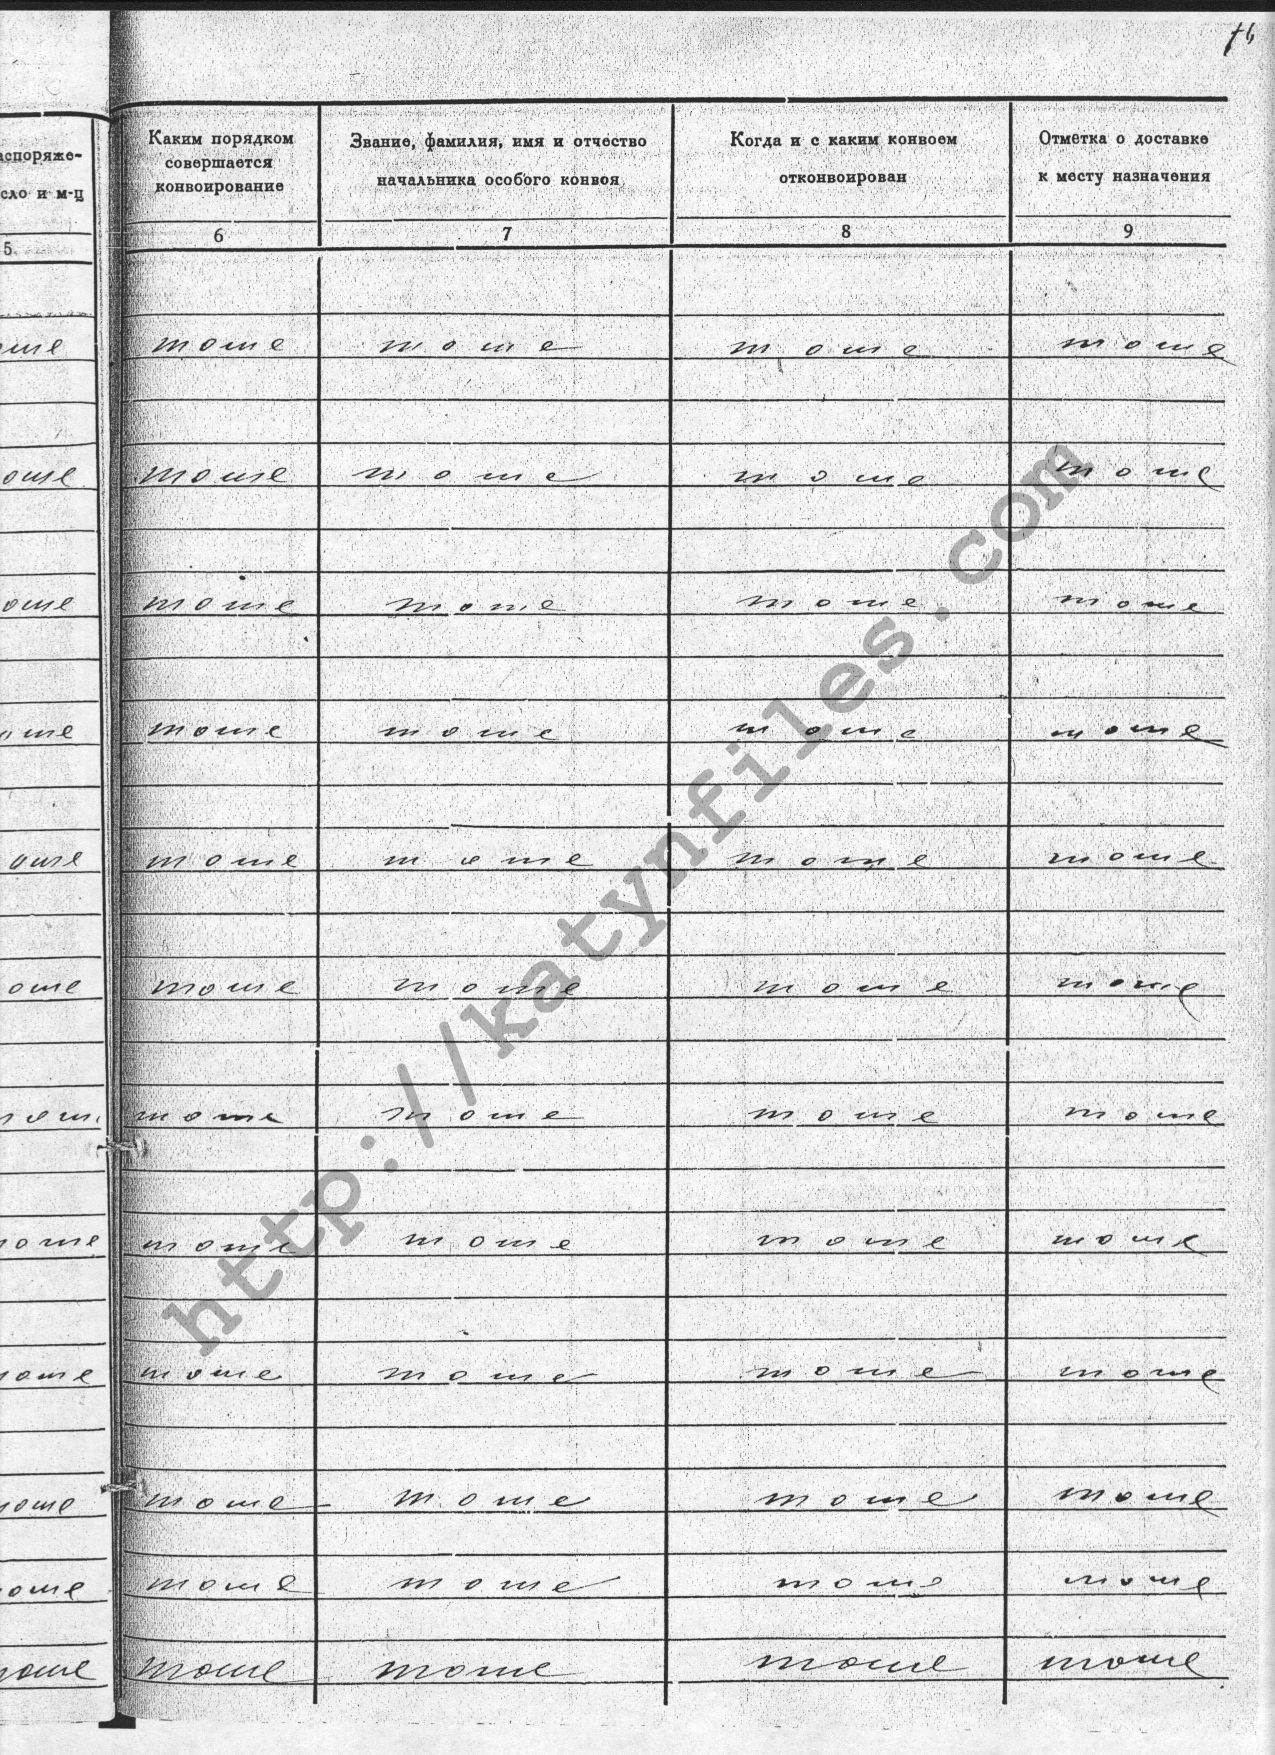 Каким порядком совершается конвоирование
Звание, фамилия, имя и отчество начальника особого конвоя
Когда и с каким конвоем отконвоирован
Отметка о доставке к месту назначения
сло и м-ц
5. 6 7 8 9
тоже тоже тоже тоже
тоже тоже тоже тоже
тоже тоже тоже тоже
тоже тоже тоже тоже
тоже тоже тоже тоже
тоже тоже тоже тоже
тоже тоже тоже тоже
тоже тоже тоже тоже
тоже тоже тоже тоже
тоже тоже тоже тоже
тоже тоже тоже тоже
тоже тоже тоже тоже
http://katynfiles.com